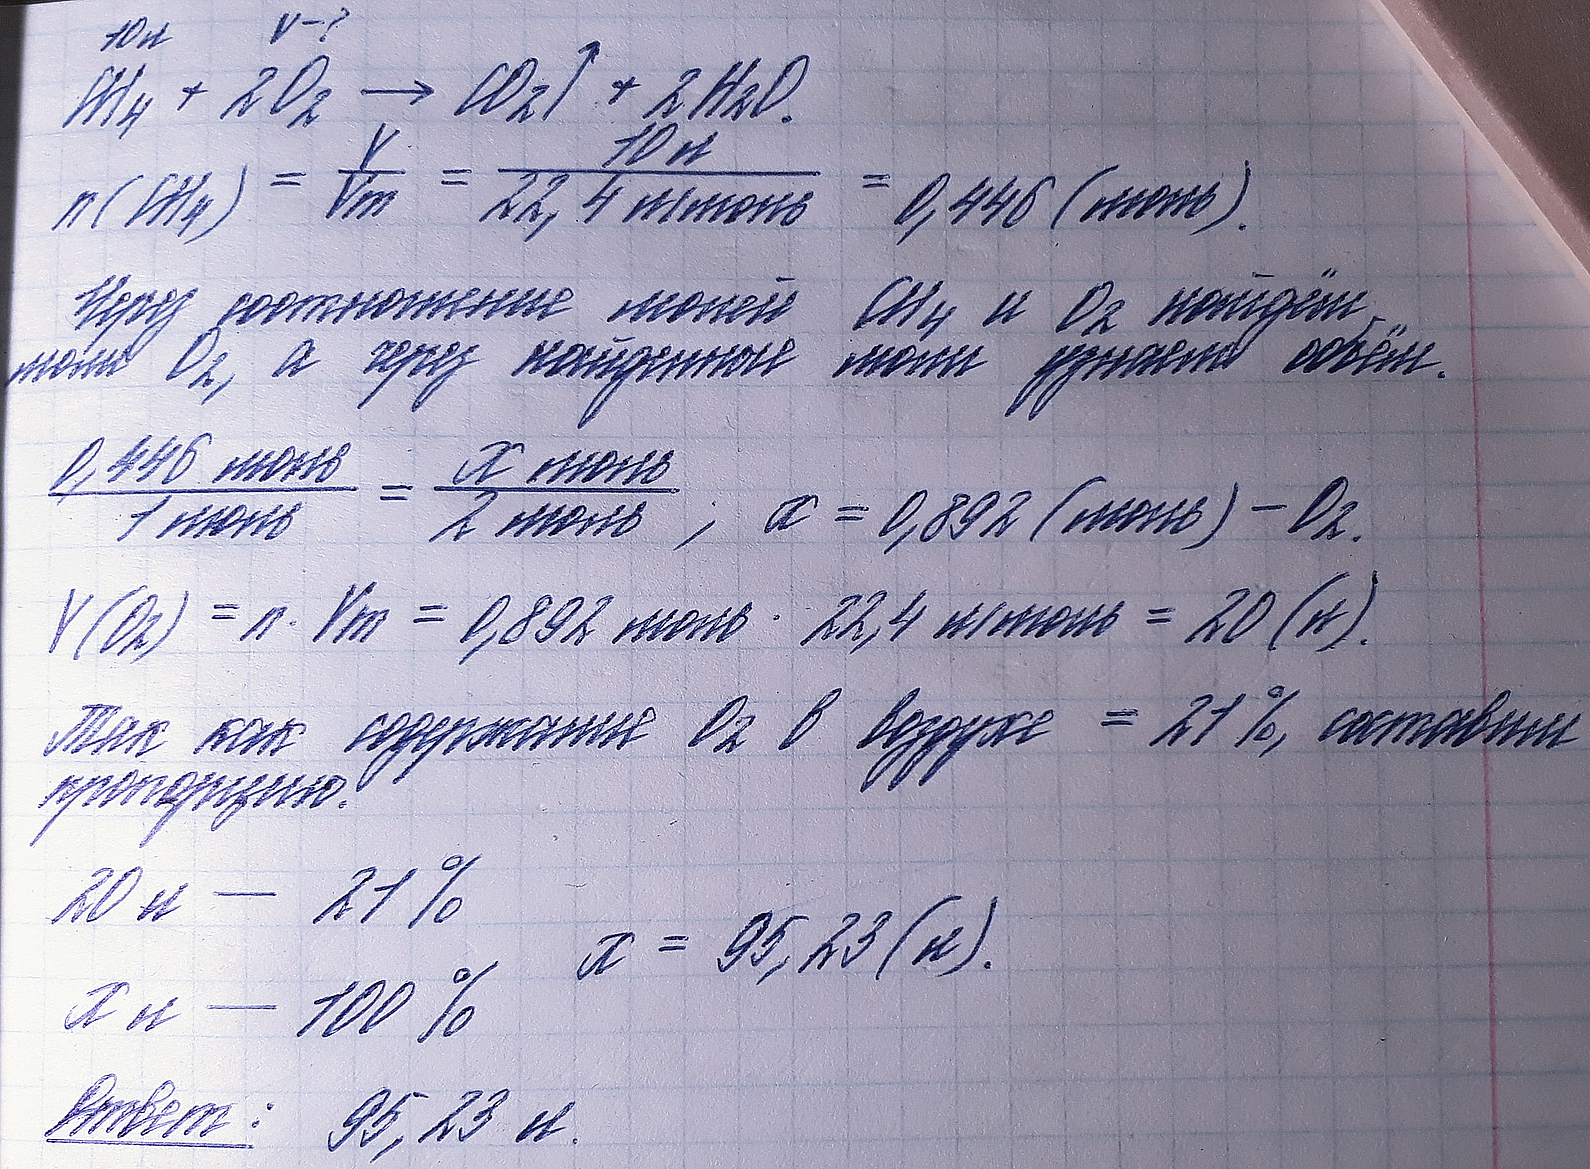 10л V-?
CH₄ + 2O₂ → CO₂↑ + 2H₂O.
n(CH₄) = V/Vm = 10 л/22,4 л/моль = 0,446 (моль).
Через соотношение молей CH₄ и O₂ найдём
моли O₂, а через найденные моли узнаем объём.
0,446 моль/1 моль = x моль/2 моль ; x = 0,892 (моль) – O₂.
V(O₂) = n · Vm = 0,892 моль · 22,4 л/моль = 20 (л).
Так как содержание O₂ в воздухе = 21%, составим
пропорцию.
20 л — 21%
x = 95,23 (л).
x л — 100%
Ответ: 95,23 л.